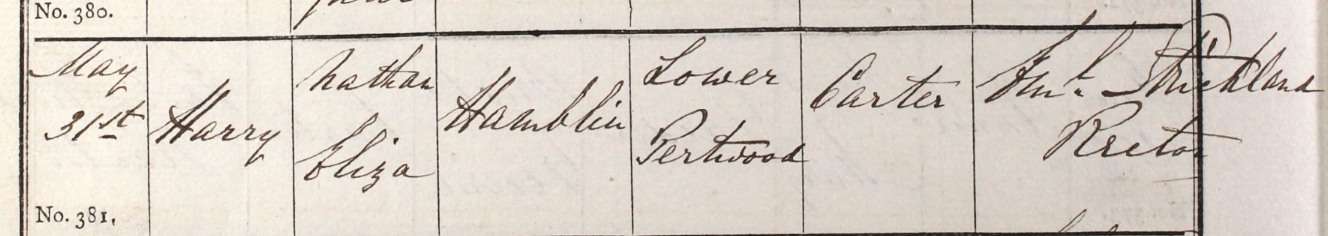 No. 380.
May
31st
Harry
Nathan
Eliza
Hamblin
Lower
Pertwood
Carter
Strickland
Rector
No. 381.